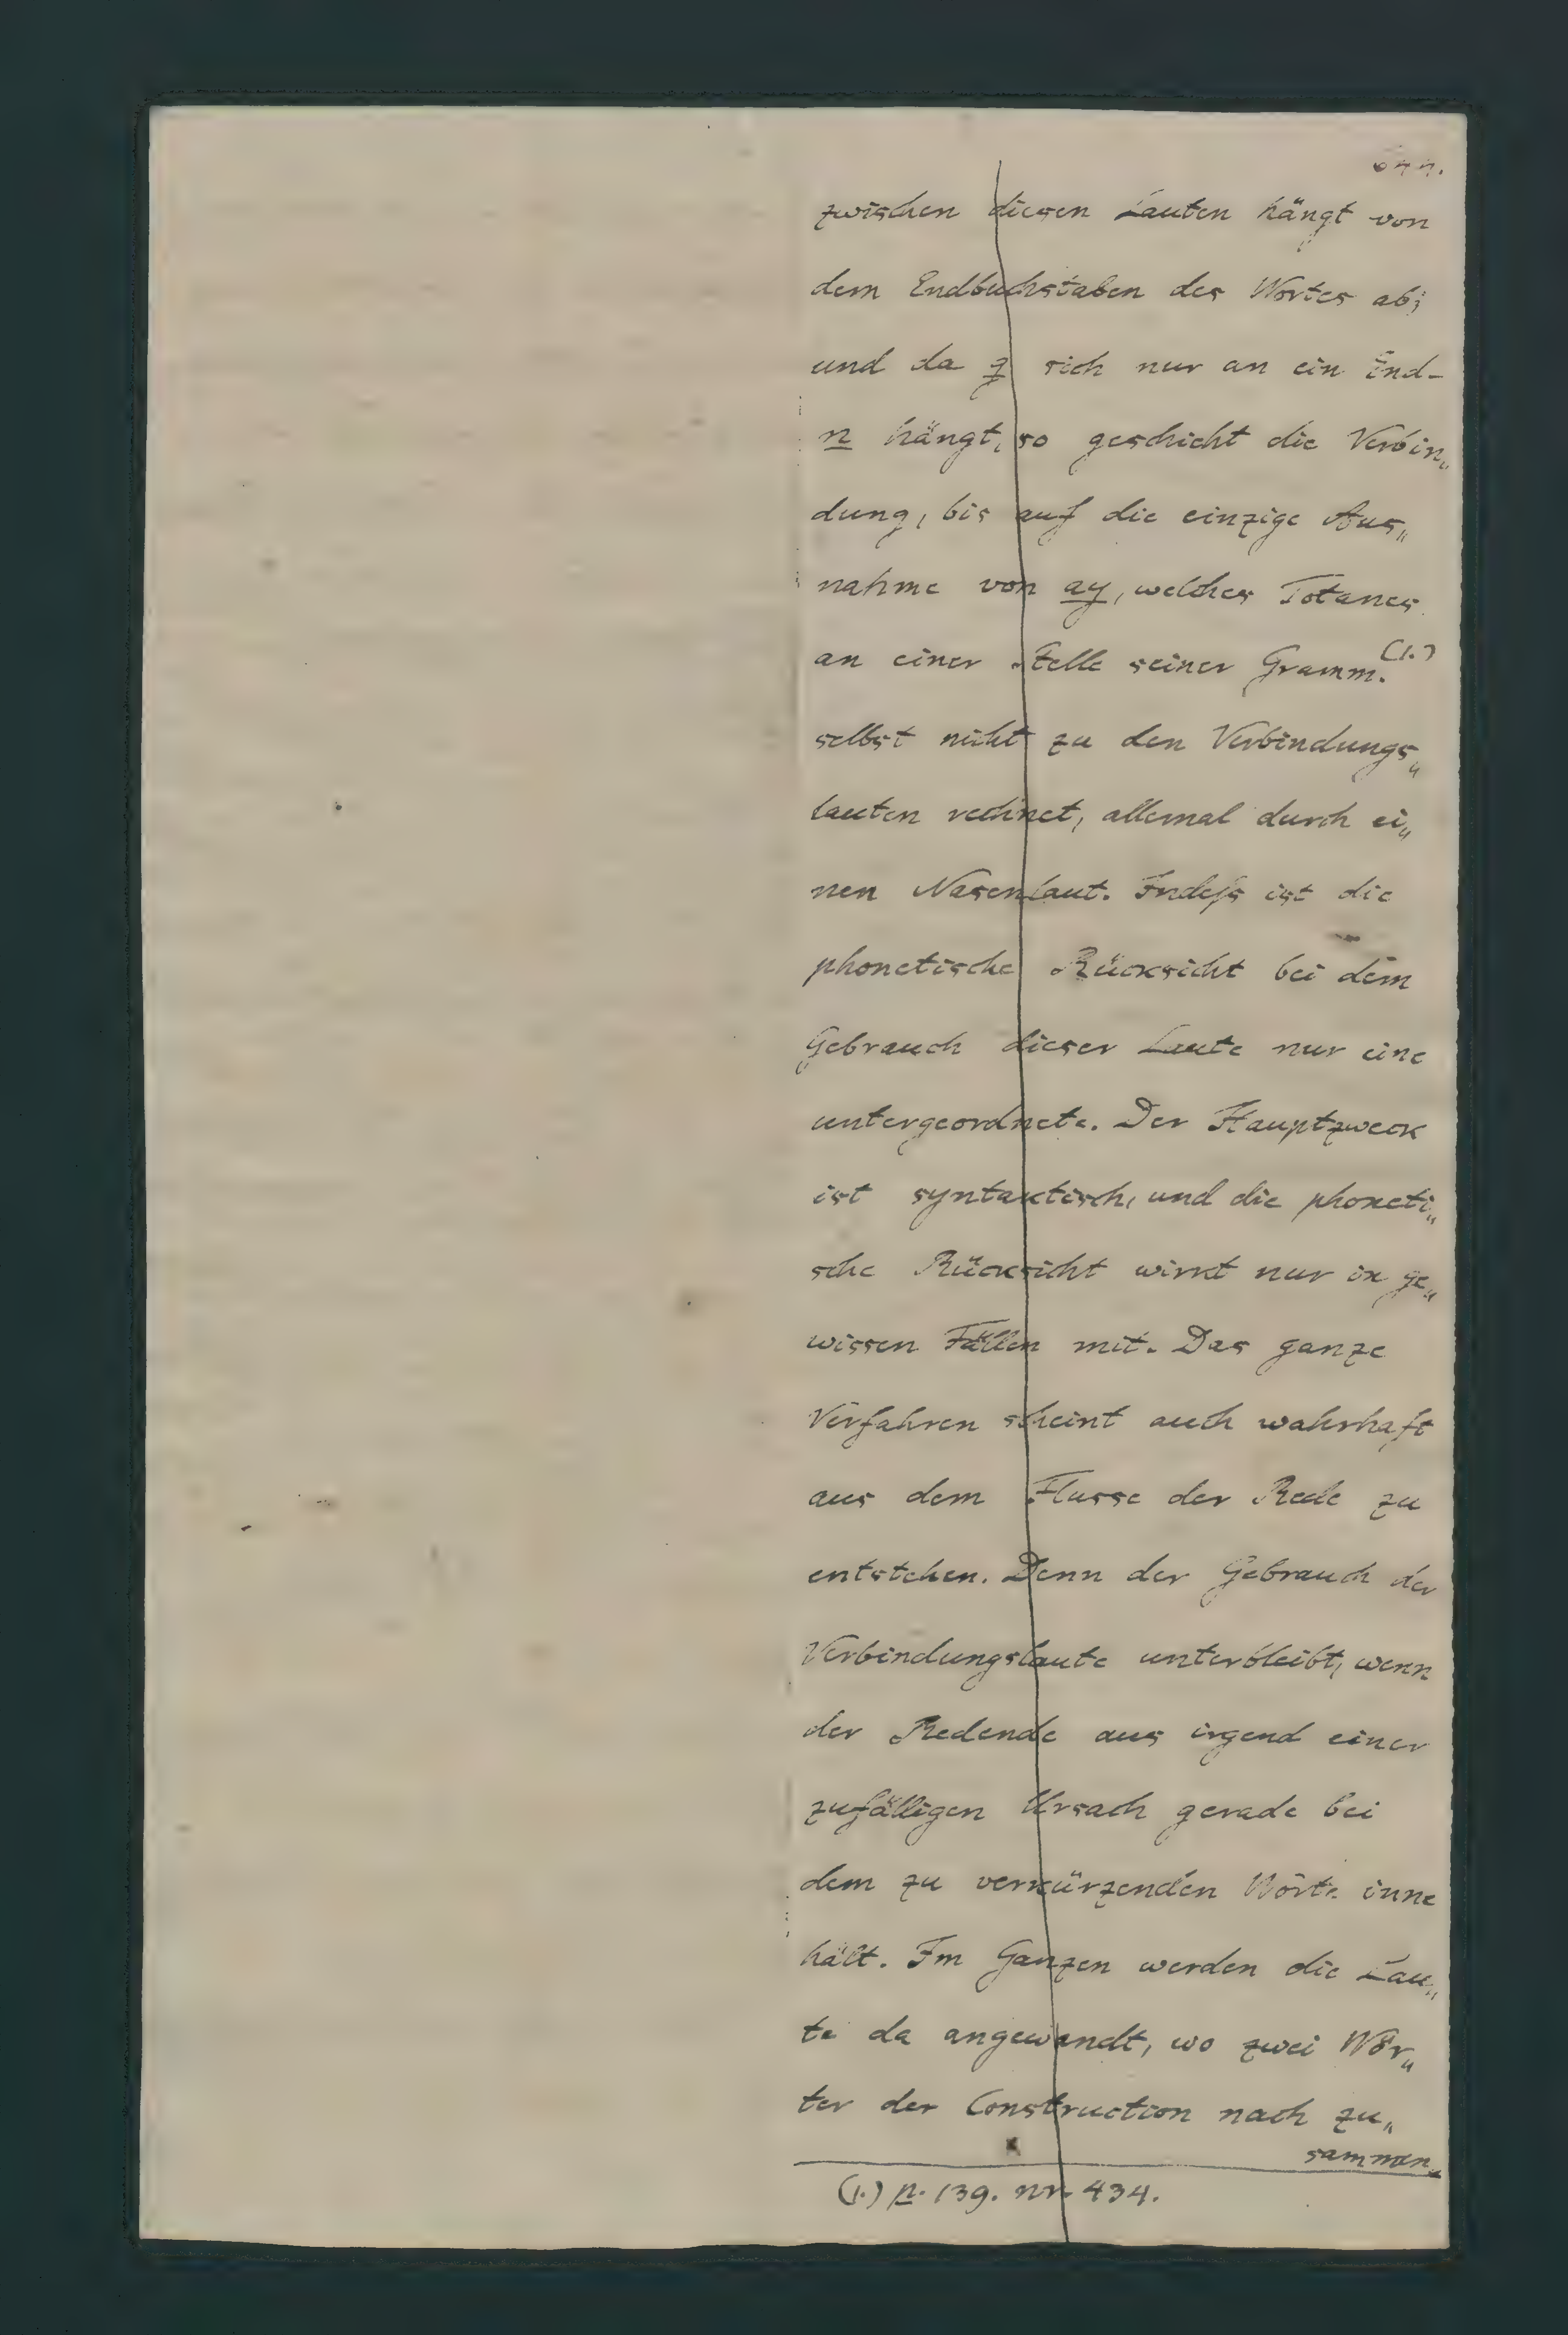 644.
zwischen diesen Lauten hängt von
dem Endbuchstaben des Wortes ab;
und da g sich nur an ein End-
n hängt, so geschieht die Verbin„
dung, bis auf die einzige Aus„
nahme von ay, welches Totanes
an einer Stelle seiner Gramm.(1.)
selbst nicht zu den Verbindungs„
lauten rechnet, allemal durch ei„
nen Nasenlaut. Indeſs ist die
phonetische Rücksicht bei dem
Gebrauch dieser Laute nur eine
untergeordnete. Der Hauptzweck
ist syntaktisch, und die phoneti„
sche Rücksicht wirkt nur in ge„
wissen Fällen mit. Das ganze
Verfahren scheint auch wahrhaft
aus dem Flusse der Rede zu
entstehen. Denn der Gebrauch der
Verbindungslaute unterbleibt, wenn
der Redende aus irgend einer
zufälligen Ursach gerade bei
dem zu verkürzenden Worte inne
hält. Im Ganzen werden die Lau„
te da angewandt, wo zwei Wör„
ter der Construction nach zu„
sammen„
(1.) p. 139. nr. 434.